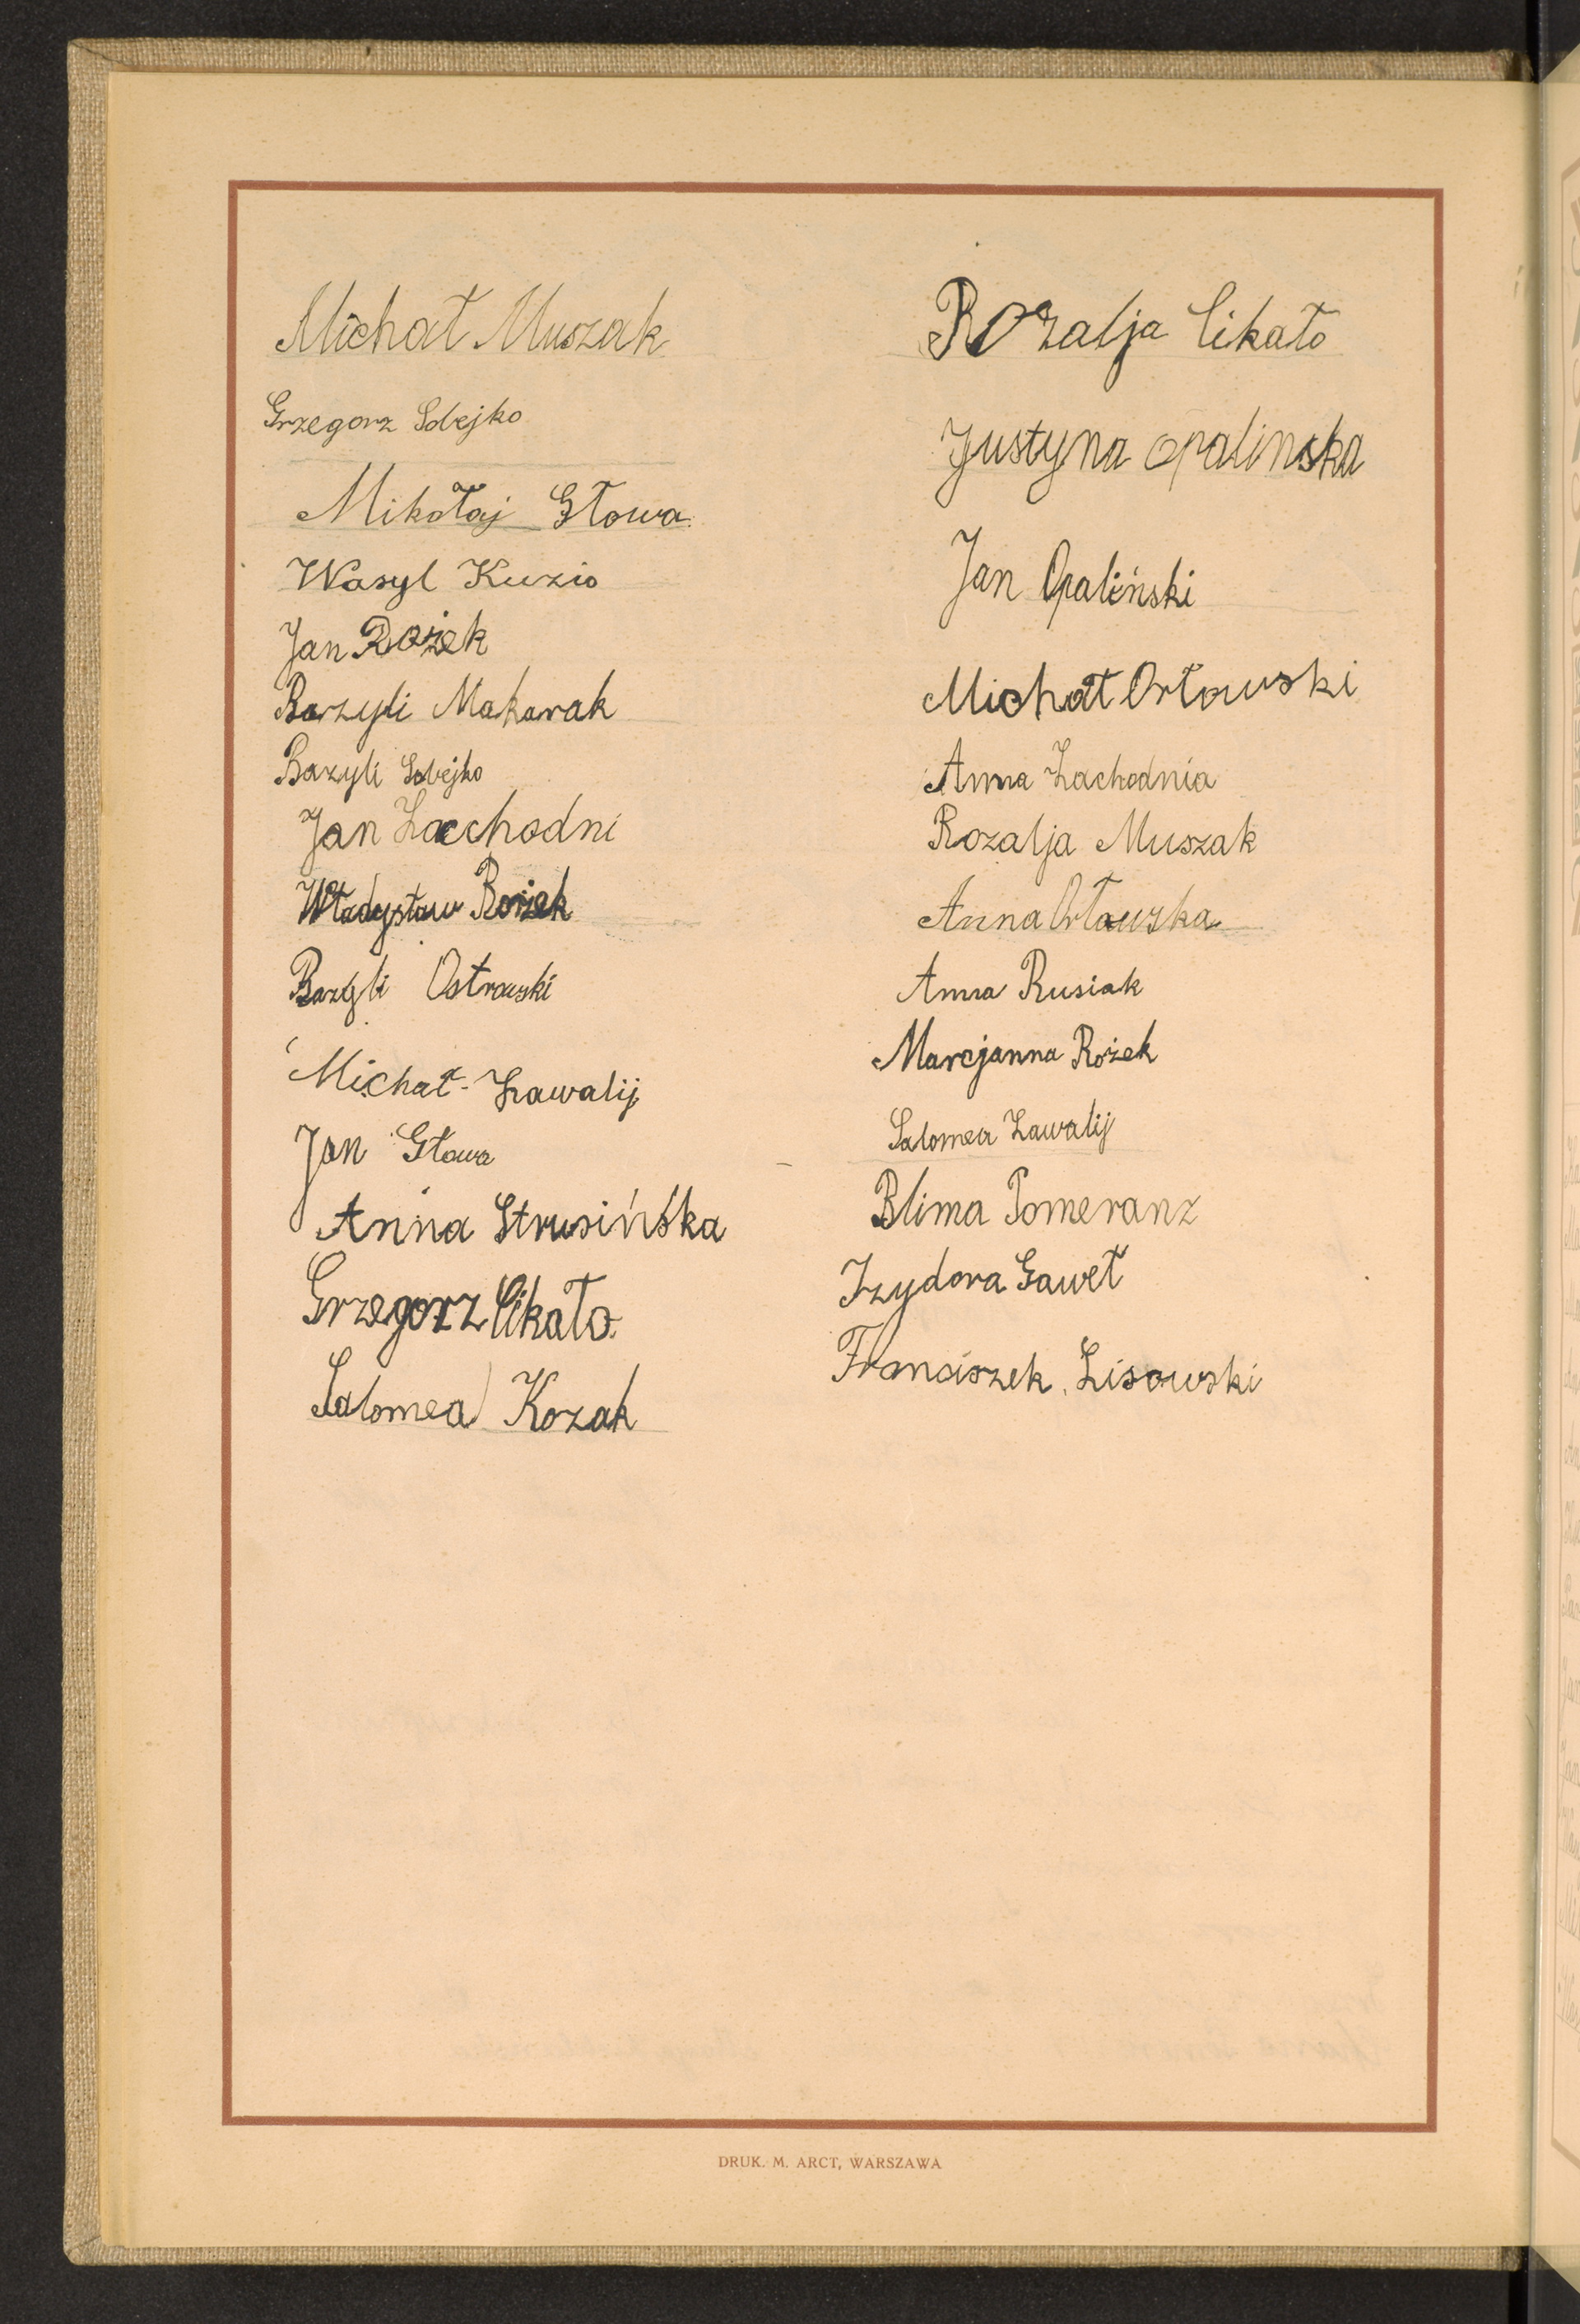 Michał Muszak
Grzegorz Sobejko
Mikołaj Głowa
Wasyl Kuzio
Jan Rożek
Barzyli Makarak
Bazyli Sobejko
Jan Zachodni
Władysław Rożek
Bazyli Ostrowski
Michał Zawalij
Jan Głowa
Anna Strusińska
Grzegorz Cikało
Salomea Kozak
Rozalja Cikało
Justyna Opalinska
Jan Opaliński
Michał Orłowski
Anna Zachodnia
Rozalja Muszak
Anna Orłowska
Anna Rusiak
Marcjanna Rożek
Salomea Zawalij
Blima Pomeranz
Izydora Gaweł
Franciszek Lisowski
DRUK. M. ARCT, WARSZAWA